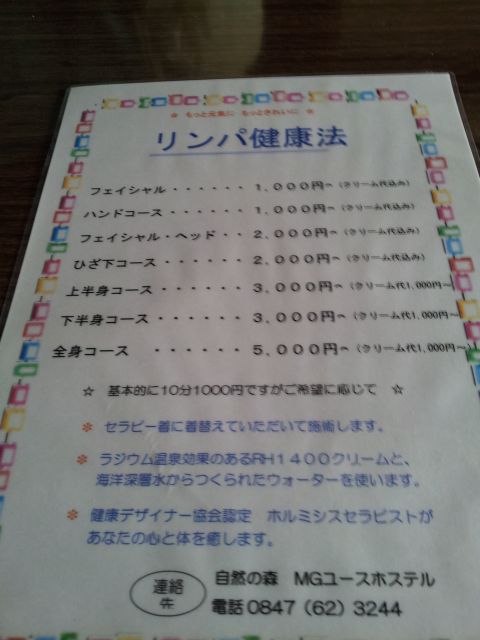 ☆ もっと元気に もっときれいに ☆
リンパ健康法
フェイシャル・・・・・・ 1,000円~(クリーム代込み)
ハンドコース・・・・・・ 1,000円~(クリーム代込み)
フェイシャル・ヘッド・・ 2,000円~(クリーム代込み)
ひざ下コース・・・・・・ 2,000円~(クリーム代込み)
上半身コース・・・・・・ 3,000円~(クリーム代1,000円~)
下半身コース・・・・・・ 3,000円~(クリーム代1,000円~)
全身コース ・・・・・・ 5,000円~(クリーム代1,000円~)
☆ 基本的に10分1000円ですがご希望に応じて ☆
※ セラピー着に着替えていただいて施術します。
※ ラジウム温泉効果のあるRH1400クリームと、
海洋深層水からつくられたウォーターを使います。
※ 健康デザイナー協会認定 ホルミシスセラピストが
あなたの心と体を癒します。
連絡先
自然の森 MGユースホステル
電話0847(62)3244